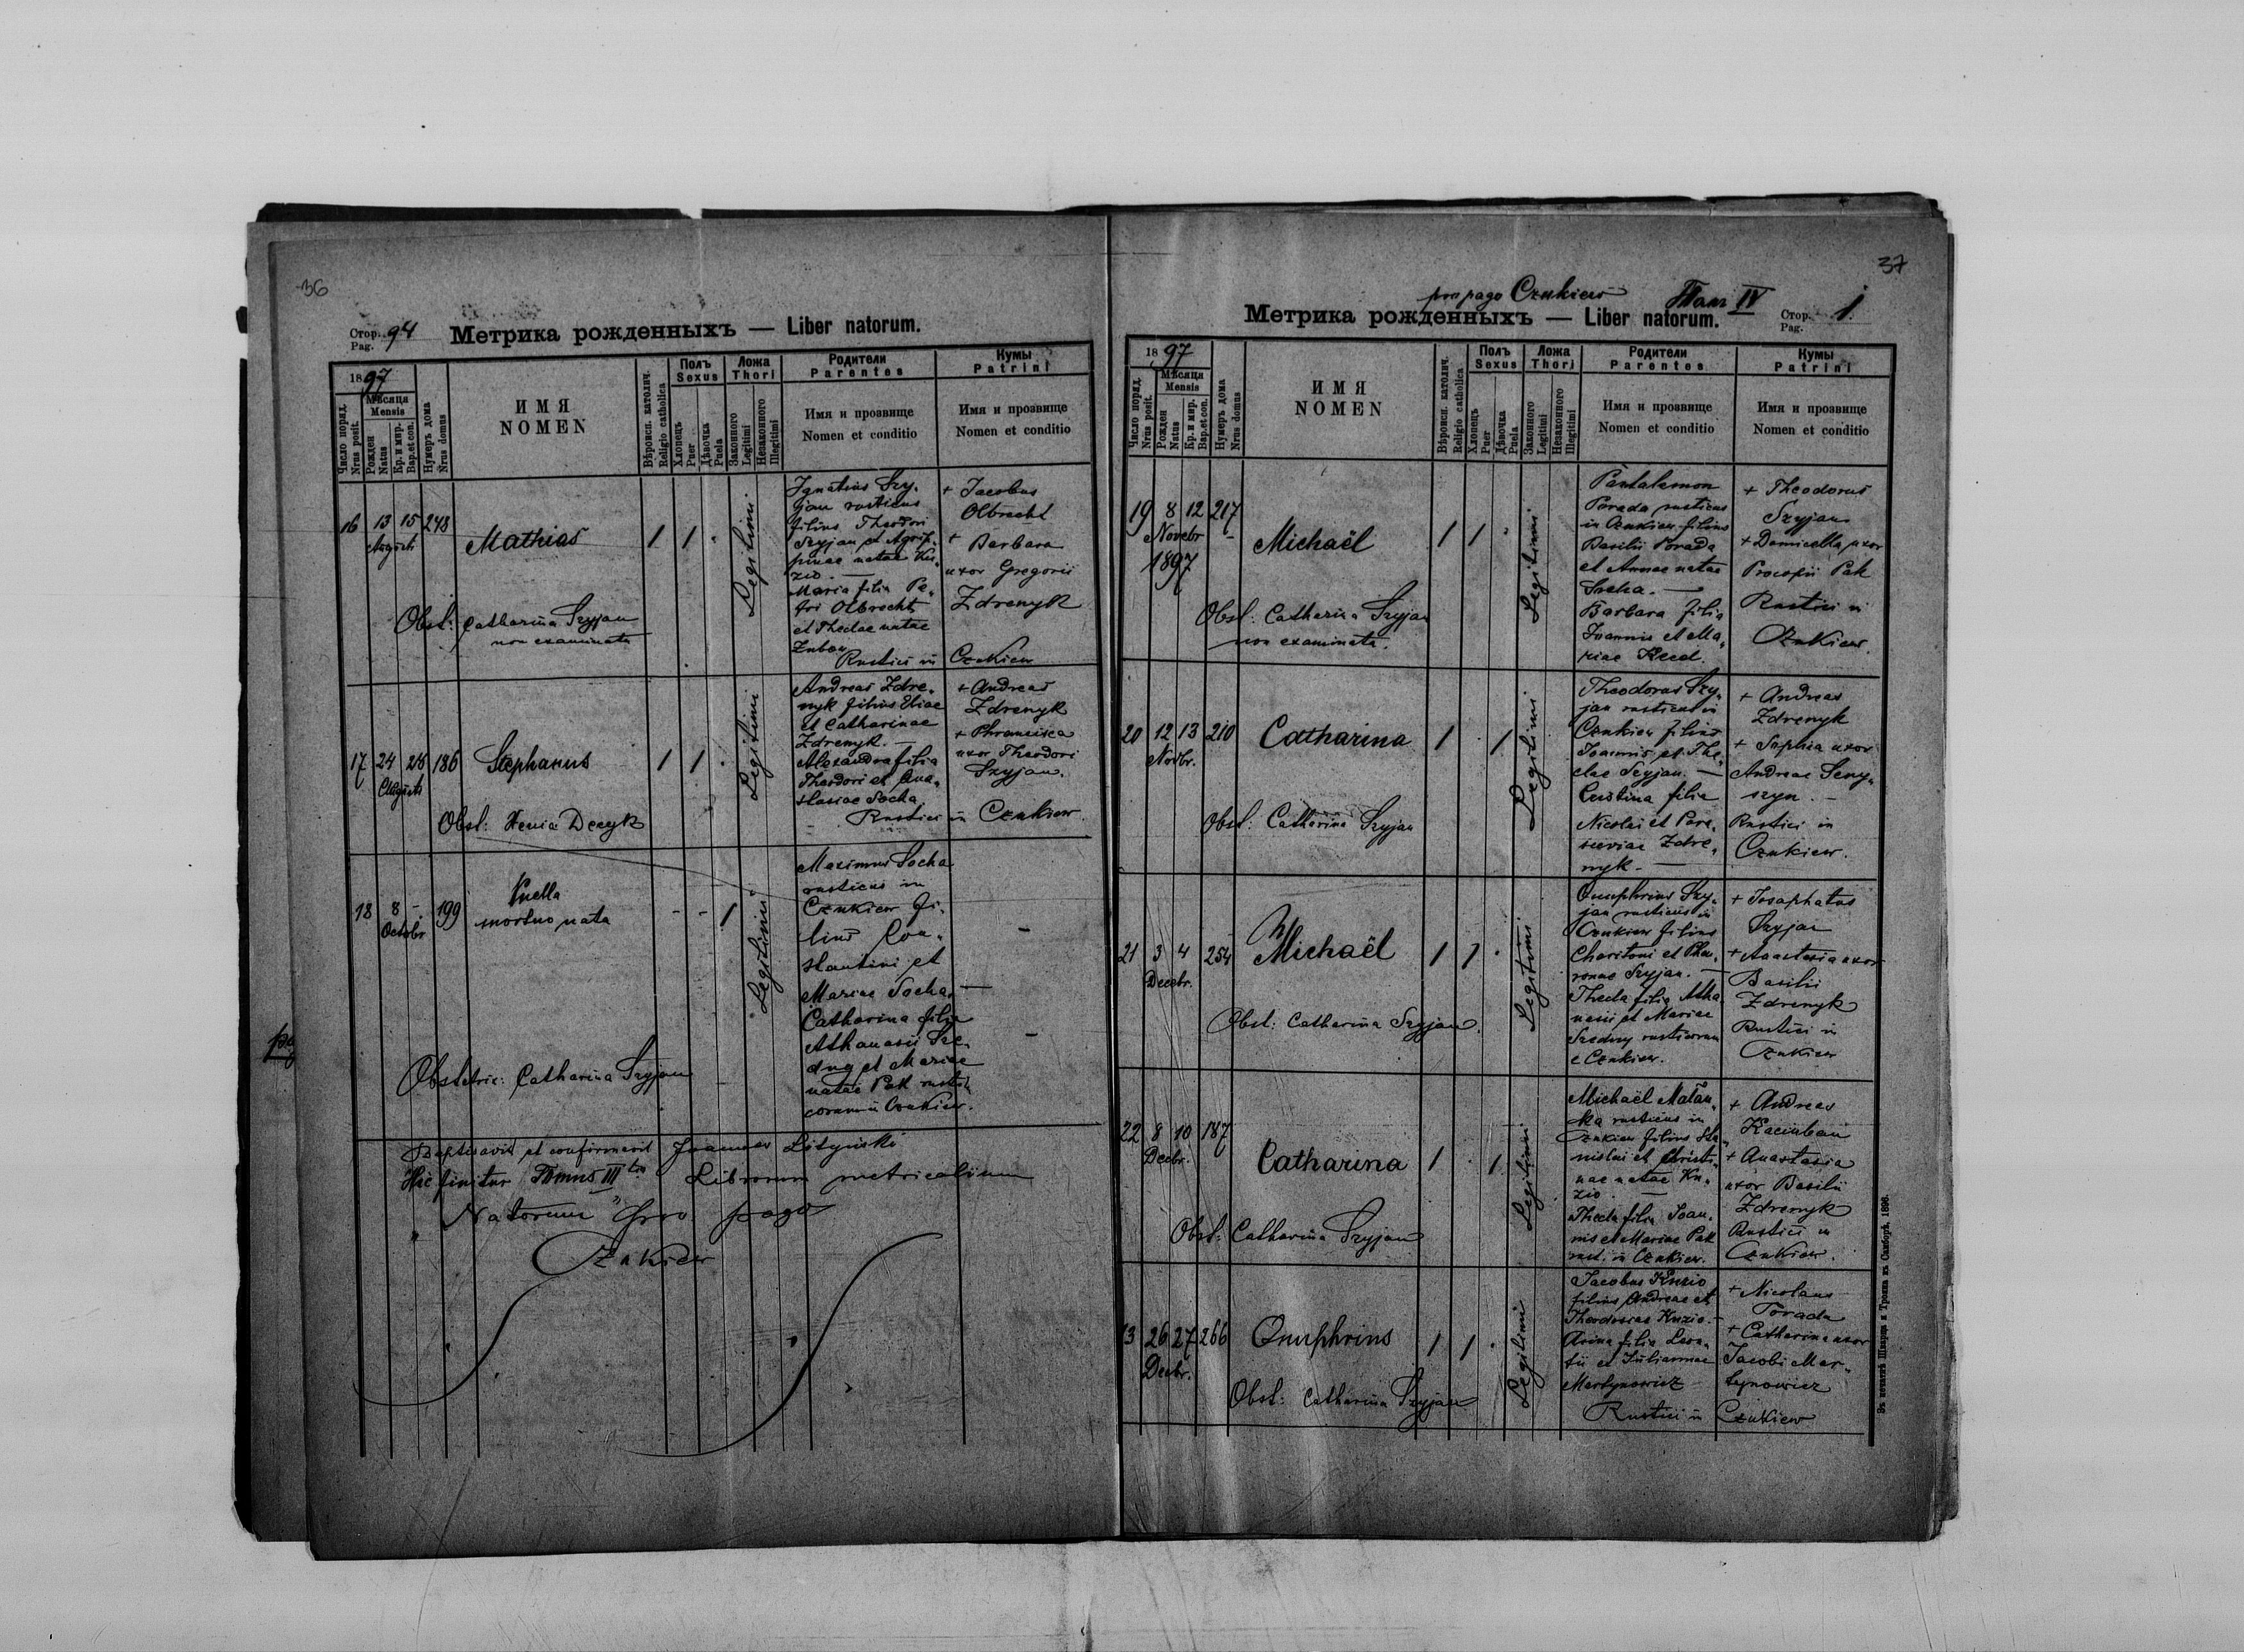 36
Стор. 94
Pag.
Метрика рожденныхъ — Liber natorum.
1897
Число поряд.
Nrus posit.
Мѣсяця
Mensis
Рожден
Natus
Кр. и мир.
Bap. et con.
Нумеръ дома
Nrus domus
ИМЯ
NOMEN
Вѣроисп. католич.
Religio catholica
Полъ
Sexus
Хлопецъ
Puer
Дѣвочка
Puela
Ложа
Thori
Законного
Legitimi
Незаконного
Illegitimi
Родители
Parentes
Имя и прозвище
Nomen et conditio
Кумы
Patrini
Имя и прозвище
Nomen et conditio
16 13 15 248
Augusti
Mathias
1 1 ·
Legitimi
Ignatius Szy-
jan rusticus
filius Theodori
Szyjan et Agrip-
pinae natae Ku-
zio. —
Maria filia Pe-
tri Olbrecht
et Theclae natae
Zubow
Rustici in Czukiew
+ Jacobus
Olbrecht
+ Barbara
uxor Gregorii
Zdrenyk
Obst: Catharina Szyjan
non examinata
17 24 26 186
Augusti
Stephanus
1 1 ·
Legitimi
Andreas Zdre-
nyk filius Eliae
et Catharinae
Zdrenyk. —
Alexandra filia
Theodori et Ana-
stasiae Socha
Rustici in Czukiew.
+ Andreas
Zdrenyk
+ Phrancisca
uxor Theodori
Szyjan.
Obst: Xenia Decyk
18 8 - 199
Octobr
Puella
mortuo nata
- - 1
Legitimi
Maximus Socha
rusticus in
Czukiew fi-
lius Con-
stantini et
Mariae Socha. —
Catharina filia
Athanasii Sze-
dny et Mariae
natae Pak rusti-
corum in Czukiew.
Obstetric: Catharina Szyjan
Baptisavit et confirmavit Joannes Litynski
Hic finitur Tomus III tius Librorum metricalium
"Natorum" pro pago
Czukiew
37
pro pago Czukiew Tom IV
Метрика рожденныхъ — Liber natorum.
Стор. 1.
Pag.
1897
Число поряд.
Nrus posit.
Мѣсяця
Mensis
Рожден
Natus
Кр. и мир.
Bap. et con.
Нумеръ дома
Nrus domus
ИМЯ
NOMEN
Вѣроисп. католич.
Religio catholica
Полъ
Sexus
Хлопецъ
Puer
Дѣвочка
Puela
Ложа
Thori
Законного
Legitimi
Незаконного
Illegitimi
Родители
Parentes
Имя и прозвище
Nomen et conditio
Кумы
Patrini
Имя и прозвище
Nomen et conditio
19 8 12 217
Novebr
1897
Michaël
1 1 ·
Legitimi
Pantalemon
Porada rusticus
in Czukiew filius
Basilii Porada
et Annae natae
Socha. —
Barbara filia
Joannis et Ma-
riae
+ Theodorus
Szyjan
+ Domicella uxor
Procopii Pak
Rustici in
Czukiew.
Obst: Catharina Szyjan
non examinata.
20 12 13 210
Novbr.
Catharina
1 · 1
Legitimi
Theodorus Szy-
jan rusticus in
Czukiew filius
Joannis et The-
clae Szyjan. —
filia
Nicolai et Para-
sceviae Zdre-
nyk. —
+ Andreas
Zdrenyk
+ Sophia uxor
Andreae Seny-
szyn. —
Rustici in
Czukiew.
Obst: Catharina Szyjan
21 3 4 254
Decebr.
Michaël
1 1 ·
Legitimi
Onuphrius Szy-
jan rusticus in
Czukiew filius
Charitoni et
Szyjan. —
Thecla filia Atha-
nasii et Mariae
Szedny rusticorum
e Czukiew.
+ Josaphatus
Szyjan
+ Anastasia uxor
Basilii
Zdrenyk
Rustici in
Czukiew
Obst: Catharina Szyjan.
22 8 10 187
Decbr.
Catharina
1 · 1
Legitimi
Michaël Malan-
ka rusticus in
Czukiew filius Sta-
nislai et Christi-
nae natae Ku-
zio. —
Thecla filia Joan-
nis et Mariae Pak
rust. in Czukiew.
+ Andreas
+ Anastasia
uxor Basilii
Zdrenyk
Rustici in
Czukiew.
Obst: Catharina Szyjan
3 26 27 266
Decbr.
Onuphrius
1 1 ·
Legitimi
Jacobus Kuzio
filius Andreae et
Theodosiae Kuzio. —
filia Leon-
tii et Juliannae
Martynowicz
Rustici in Czukiew
+ Nicolaus
Porada
+ Catharina uxor
Jacobi Mar-
tynowicz
Obst: Catharina Szyjan
Въ печатнѣ Шварца и Трояна въ Самборѣ, 1896.